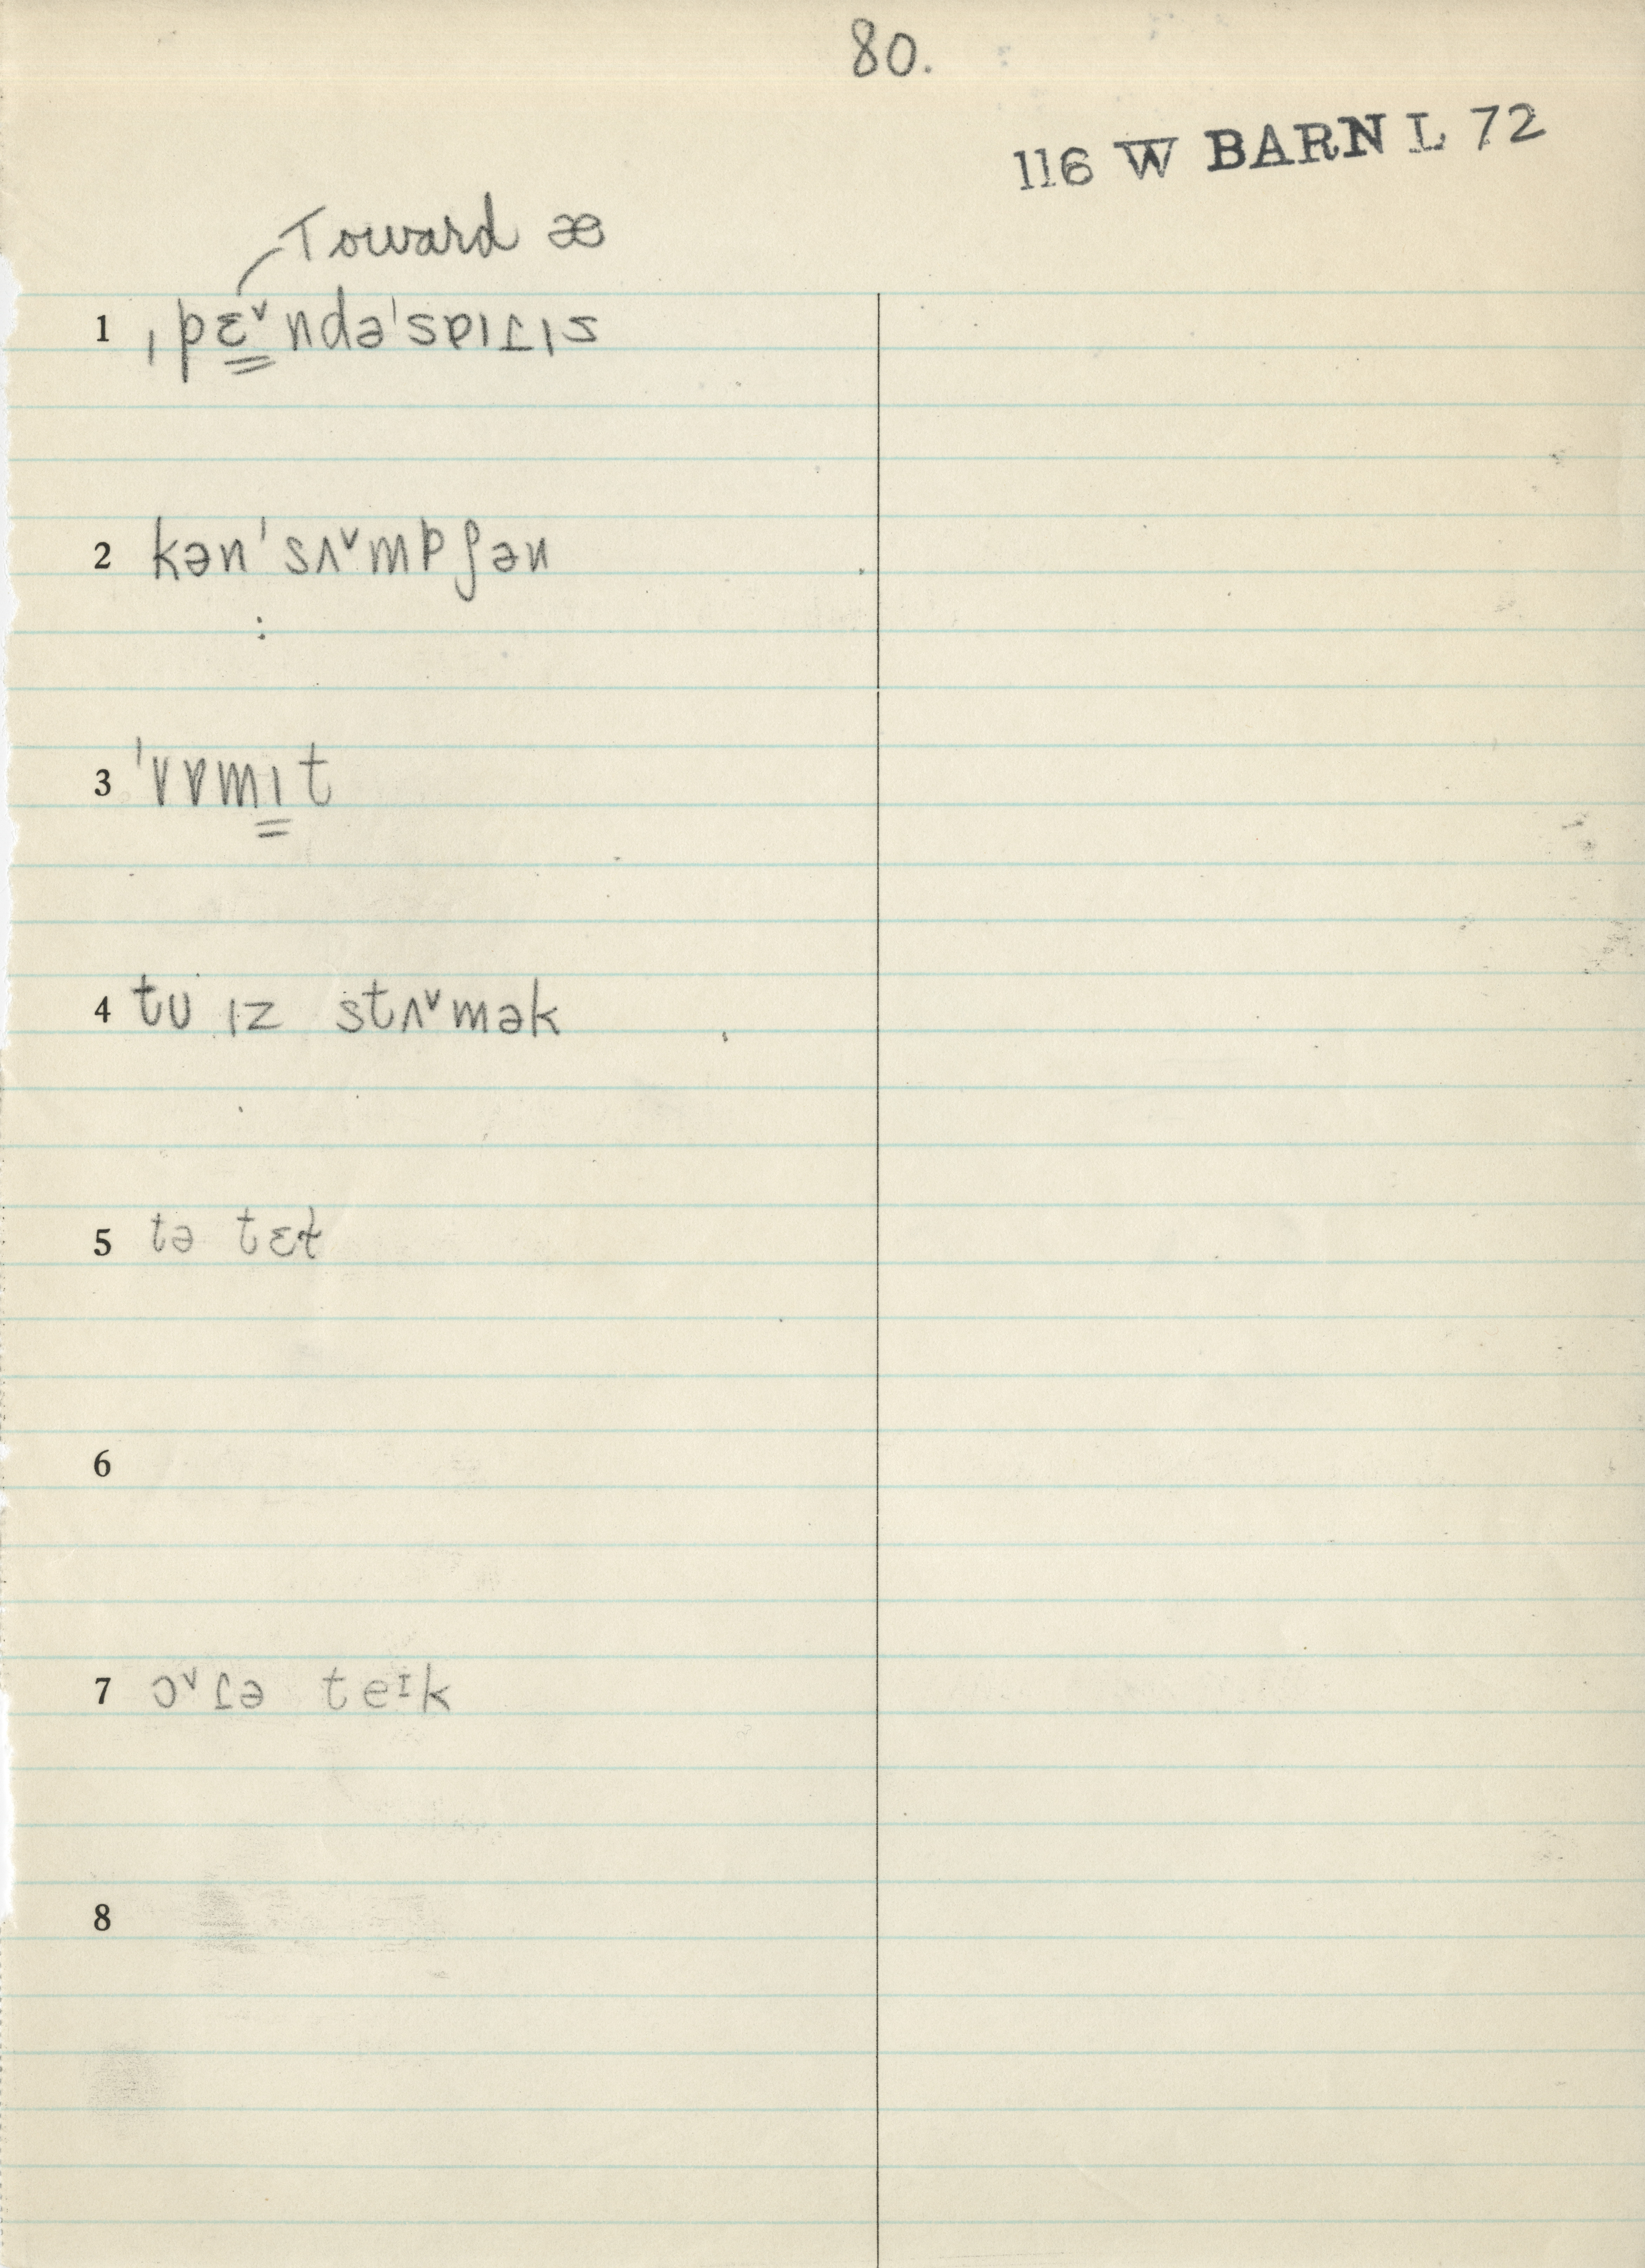 80.
116 W BARN L 72
Toward æ
1 ˌpɛ̳ˇndə'sɐɪɾɪs
2 kən'sʌˇmpʃən
:
3 'vɐmɪ̳t
4 tʊ ɪz stʌˇmək
5 tə tɛɫ
6
7 ɔˇɾə teᶦk
8